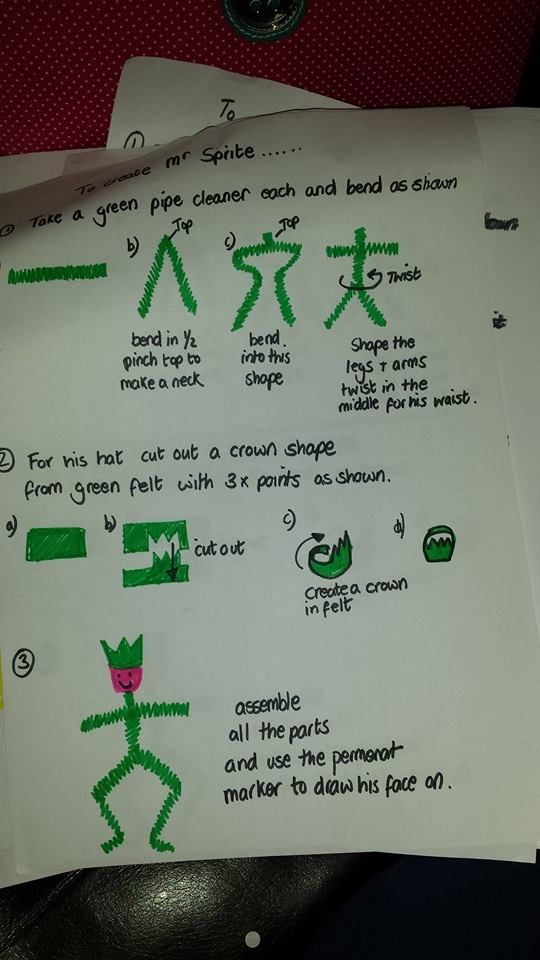 To
①
To create mr Sprite ......
① Take a green pipe cleaner each and bend as shown
b)
Top
c)
Top
Twist
bend in 1/2
pinch top to
make a neck
bend.
into this
shape
Shape the
legs + arms
twist in the
middle for his waist.
② For his hat cut out a crown shape
from green felt with 3x points as shown.
a)
b)
cut out
c)
d)
Create a crown
in felt
③
assemble
all the parts
and use the permenat
marker to draw his face on.